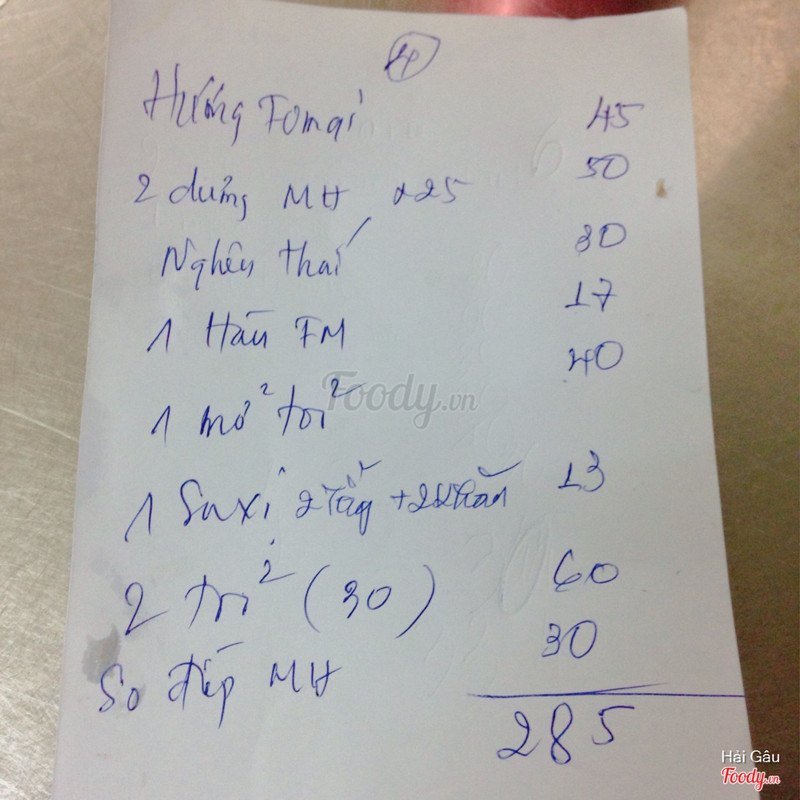 4
Hướng Fomai 45
2 dừng MH x25 50
Nghêu thái 30
1 Hàu FM 17
1 mở² tỏi² 40
1 Suxi 2 Tẩy + 2 khăn 13
2 tỏi² (30) 60
So điệp MH 30
285
Foody.vn
Hải Gâu
Foody.vn